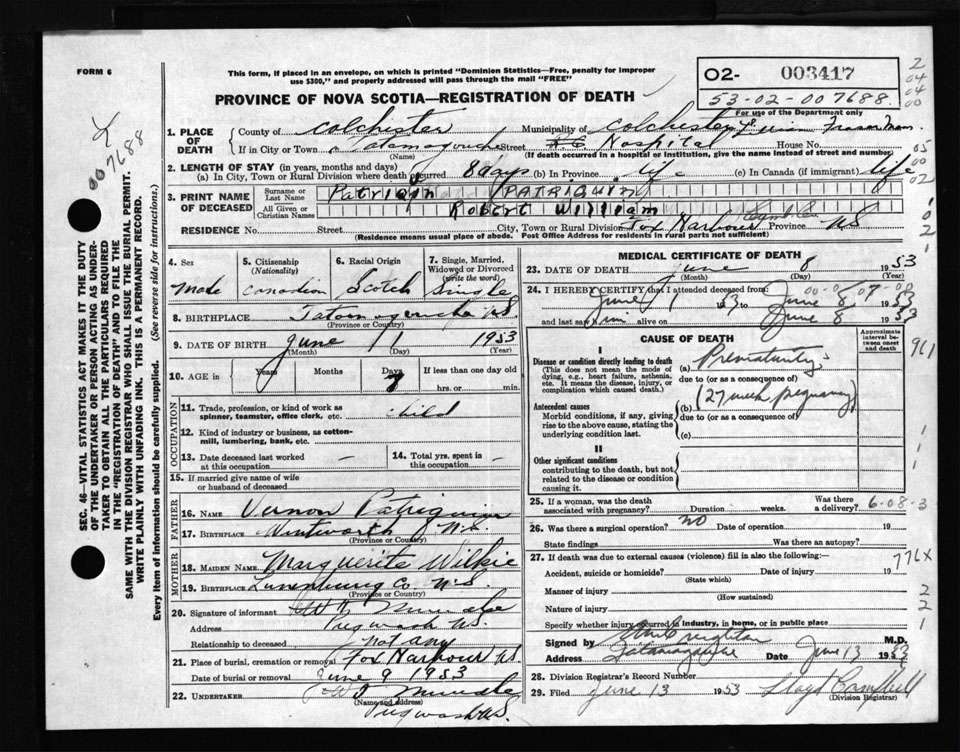 FORM 6
This form, if placed in an envelope, on which is printed "Dominion Statistics—Free, penalty for improper
use $300," and properly addressed will pass through the mail "FREE"
PROVINCE OF NOVA SCOTIA—REGISTRATION OF DEATH
02- 003417
53-02-007688
For use of the Department only
7688
SEC. 46—VITAL STATISTICS ACT MAKES IT THE DUTY
OF THE UNDERTAKER OR PERSON ACTING AS UNDER-
TAKER TO OBTAIN ALL THE PARTICULARS REQUIRED
IN THE "REGISTRATION OF DEATH" AND TO FILE THE
SAME WITH THE DIVISION REGISTRAR WHO SHALL ISSUE THE BURIAL PERMIT.
WRITE PLAINLY WITH UNFADING INK. THIS IS A PERMANENT RECORD.
Every item of information should be carefully supplied. (See reverse side for instructions.)
1. PLACE OF DEATH County of Colchester Municipality of Colchester
If in City or Town Tatamagouche Street Hospital House No.
(Name) (If death occurred in a hospital or institution, give the name instead of street and number)
2. LENGTH OF STAY (in years, months and days)
(a) In City, Town or Rural Division where death occurred 8 days (b) In Province life (c) In Canada (if immigrant) life
3. PRINT NAME OF DECEASED Surname or Last Name Patriqin PATRIQUIN
All Given or Christian Names Robert William
RESIDENCE No. Street City, Town or Rural Division Fox Harbour Province NS
(Residence means usual place of abode. Post Office Address for residents in rural parts not sufficient)
4. Sex Male
5. Citizenship (Nationality) Canadian
6. Racial Origin Scotch
7. Single, Married, Widowed or Divorced (write the word) Single
8. BIRTHPLACE Tatamagouche NS
(Province or Country)
9. DATE OF BIRTH June 1 1953
(Month) (Day) (Year)
10. AGE in Years Months Days 7 If less than one day old
hrs. or min.
OCCUPATION
11. Trade, profession, or kind of work as spinner, teamster, office clerk, etc. child
12. Kind of industry or business, as cotton-mill, lumbering, bank, etc.
13. Date deceased last worked at this occupation — 14. Total yrs. spent in this occupation —
15. If married give name of wife or husband of deceased
FATHER
16. NAME Vernon Patriquin
17. BIRTHPLACE Wentworth N.S.
(Province or Country)
MOTHER
18. MAIDEN NAME Marguerite Wilkie
19. BIRTHPLACE Lunenburg Co. N.S.
(Province or Country)
20. Signature of informant
Address Pugwash NS.
Relationship to deceased not any
21. Place of burial, cremation or removal Fox Harbour NS
Date of burial or removal June 9 1953
22. UNDERTAKER
(Name and address)
Pugwash NS.
MEDICAL CERTIFICATE OF DEATH
23. DATE OF DEATH June 8 1953
(Month) (Day) (Year)
24. I HEREBY CERTIFY that I attended deceased from
June 1 1953 to June 8 1953
and last saw him alive on June 8 1953
CAUSE OF DEATH
Approximate interval between onset and death
I
Disease or condition directly leading to death
(This does not mean the mode of dying, e.g., heart failure, asthenia, etc. It means the disease, injury, or complication which caused death.)
(a) Prematurity
due to (or as a consequence of)
(b) (27 week pregnancy)
due to (or as a consequence of)
(c)
Antecedent causes
Morbid conditions, if any, giving rise to the above cause, stating the underlying condition last.
II
Other significant conditions
contributing to the death, but not related to the disease or condition causing it.
25. If a woman, was the death associated with pregnancy? Duration weeks. Was there a delivery? 6-08-3
26. Was there a surgical operation? NO Date of operation 19
State findings Was there an autopsy?
27. If death was due to external causes (violence) fill in also the following:—
Accident, suicide or homicide? Date of injury 19
(State which)
Manner of injury
(How sustained)
Nature of injury
Specify whether injury occurred in industry, in home, or in public place
Signed by Creighton M.D.
Address Tatamagouche Date June 13 1953
28. Division Registrar's Record Number
29. Filed June 13 1953 Lloyd Campbell
(Division Registrar)
776X